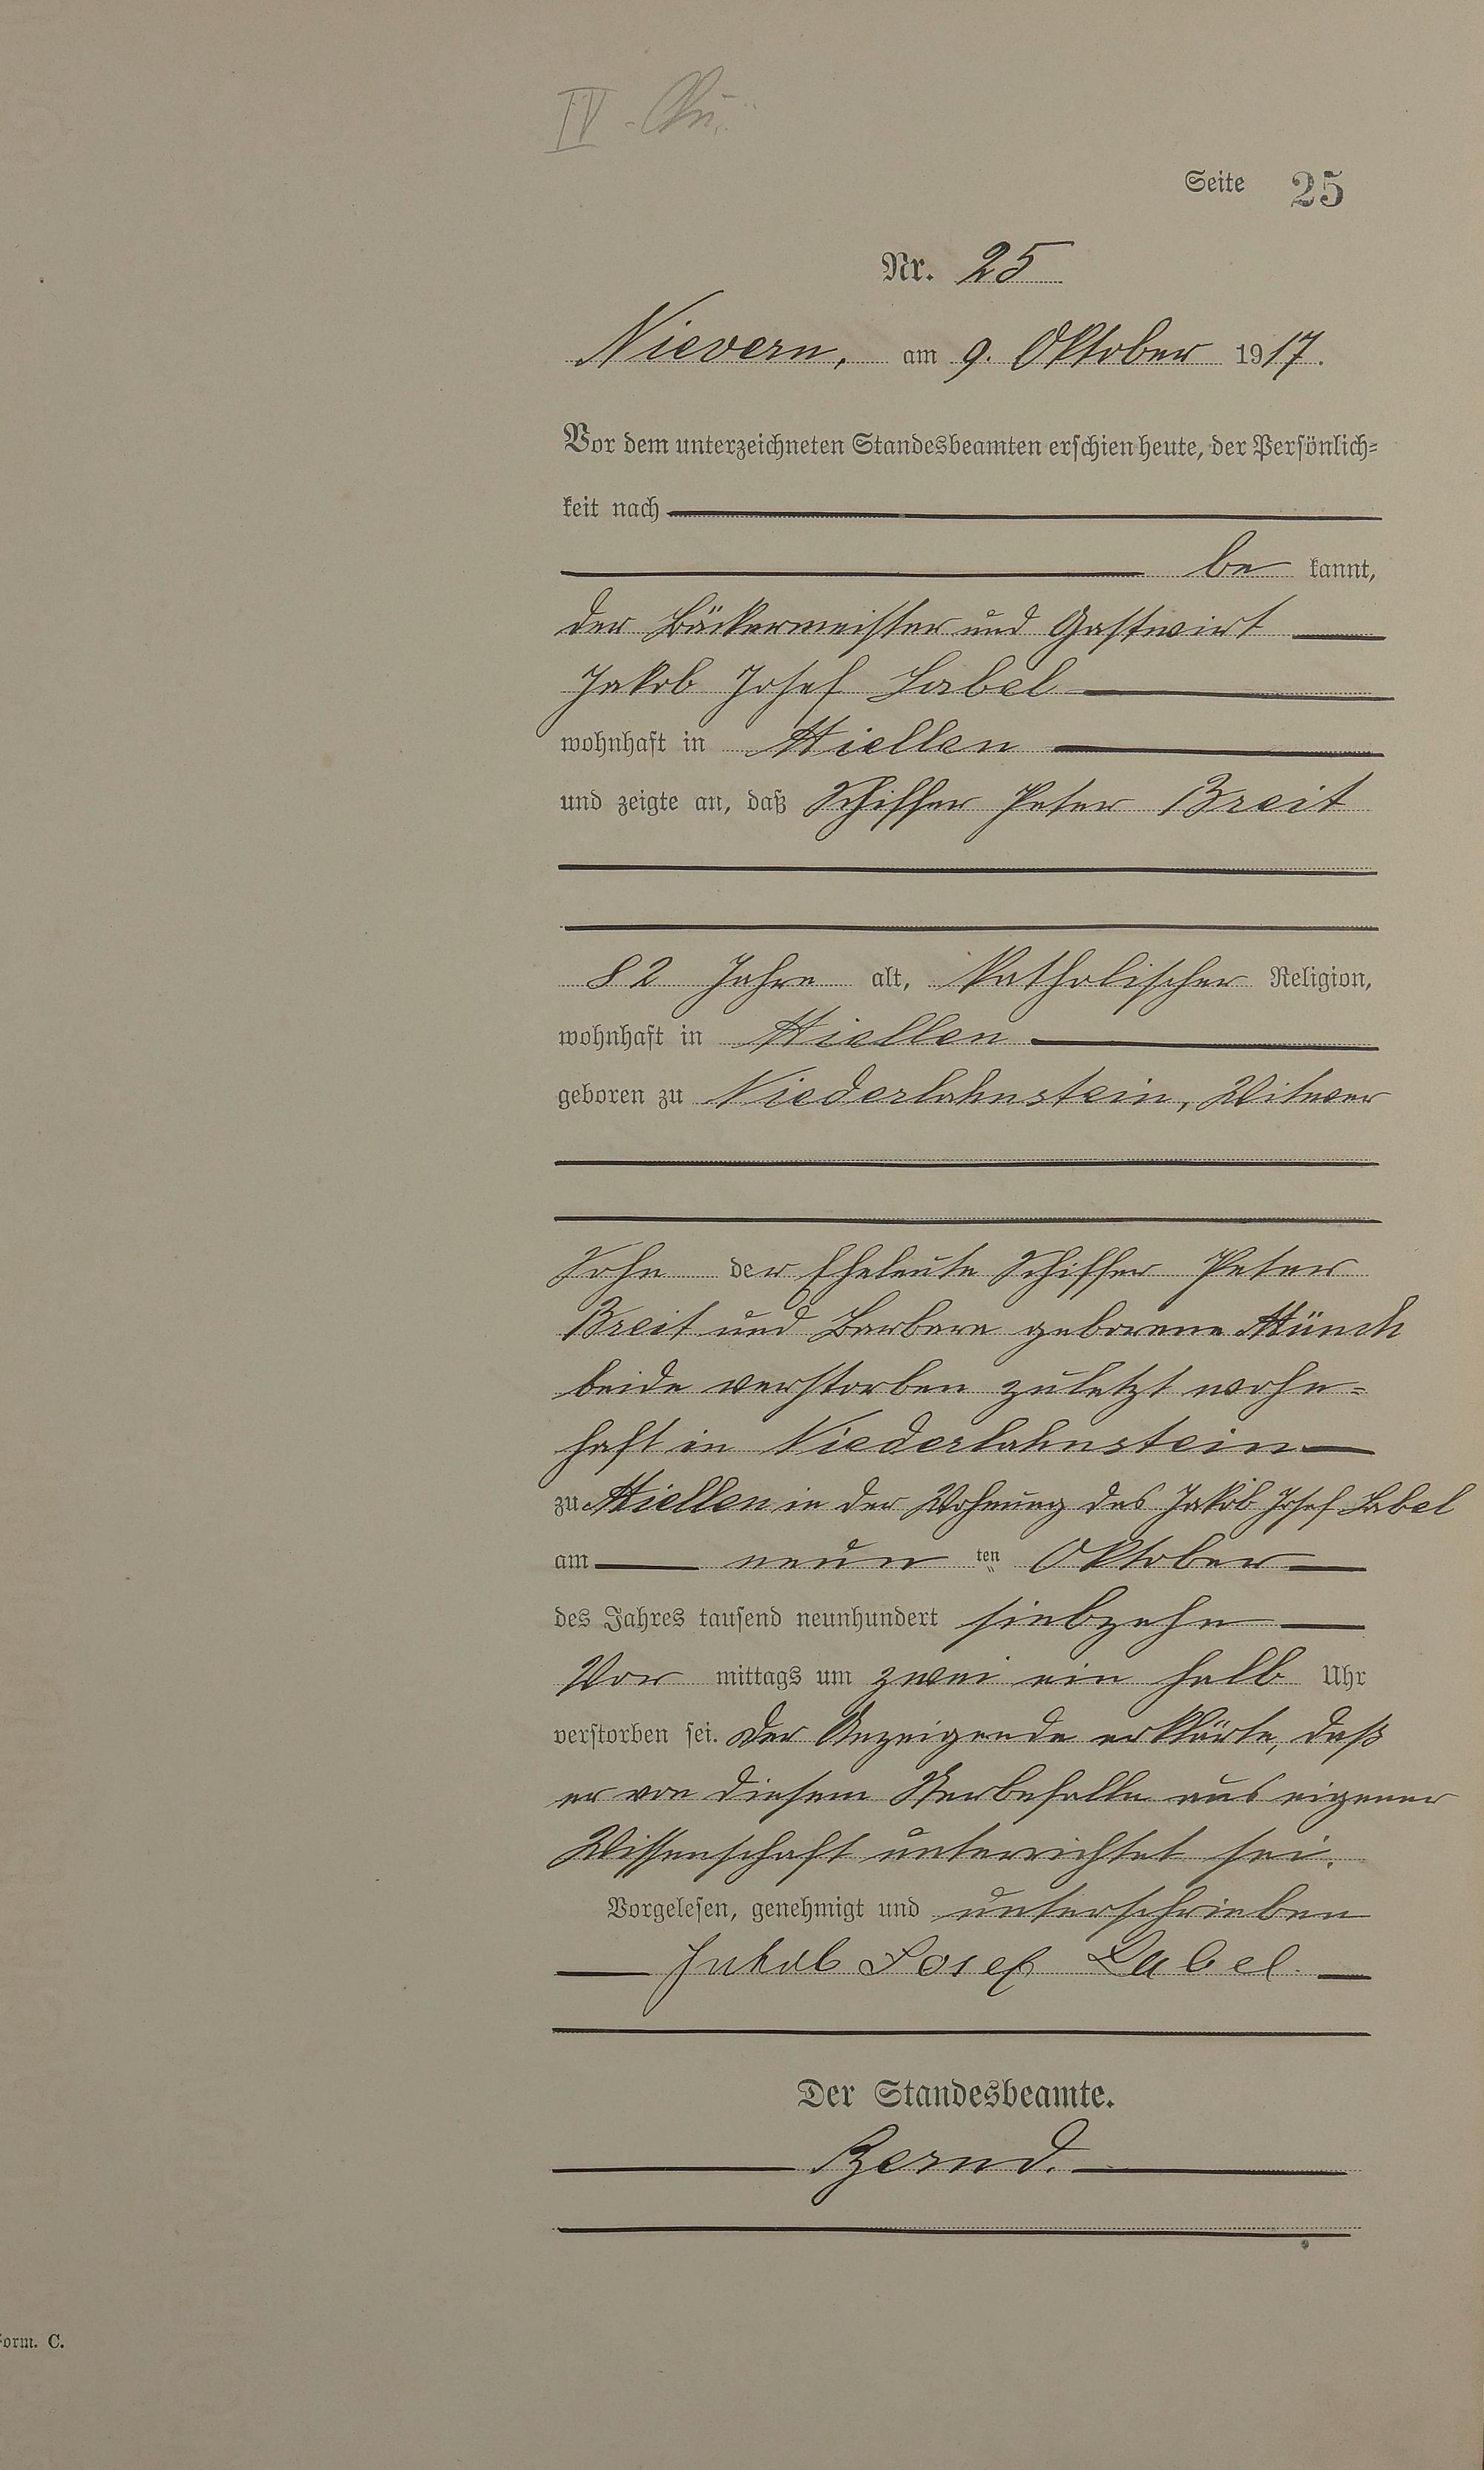 IV.
Seite 25
Nr. 25
Nievern, am 9. Oktober 1917.
Vor dem unterzeichneten Standesbeamten erschien heute, der Persönlich=
keit nach
be kannt,
der Bäckermeister und Gastwirt
Jakob Josef Label
wohnhaft in Miellen
und zeigte an, daß Schiffer Peter Breit
82 Jahre alt, katholischer Religion,
wohnhaft in Miellen
geboren zu Niederlahnstein, Witwer
Sohn der Eheleute Schiffer Peter
Breit und Barbara geborene Münch
beide verstorben zuletzt wohn=
haft in Niederlahnstein
zu Miellen in der Wohnung des Jakob Josef Label
am neun ten Oktober
des Jahres tausend neunhundert siebzehn
Vor mittags um zwei ein halb Uhr
verstorben sei. Der Anzeigende erklärte, daß
er von diesem Sterbefalle aus eigener
Wissenschaft unterrichtet sei.
Vorgelesen, genehmigt und unterschrieben
Jakob Josef Label.
Der Standesbeamte.
Bernd.
Form. C.